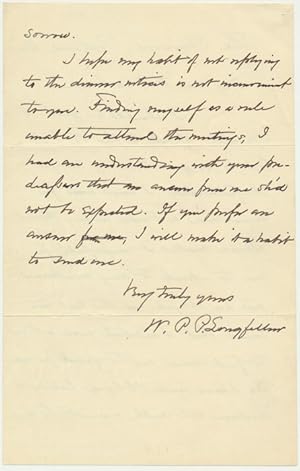 sorrow.
I hope my habit of not replying
to the dinner notices is not inconvenient
to you. Finding myself as a rule
unable to attend the meetings, I
had an understanding with your pre-
decessors that no answer from me sh'd
not be expected. If you prefer an
answer from me, I will make it a habit
to send one.
Very truly yours
W. P. P. Longfellow